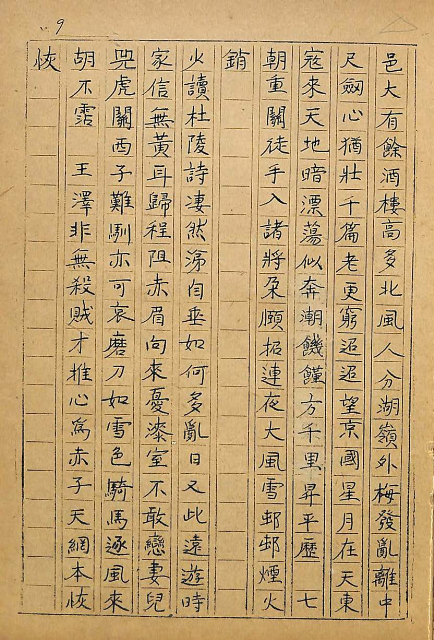 9
邑大有餘酒樓高多北風人分湖嶺外梅發亂離中
尺劍心猶壯千篇老更窮迢迢望京國星月在天東
寇來天地暗漂蕩似奔潮饑饉方千里昇平歷 七
朝重關徒手入諸將朶頤招連夜大風雪邨邨煙火
銷
少讀杜陵詩凄然涕自垂如何多亂日又此遠遊時
家信無黃耳歸程阻赤眉向來憂漆室不敢戀妻兒
兕虎關西子難馴亦可哀磨刀如雪色騎馬逐風來
胡不霑 王澤非無殺賊才推心爲赤子天網本恢
恢